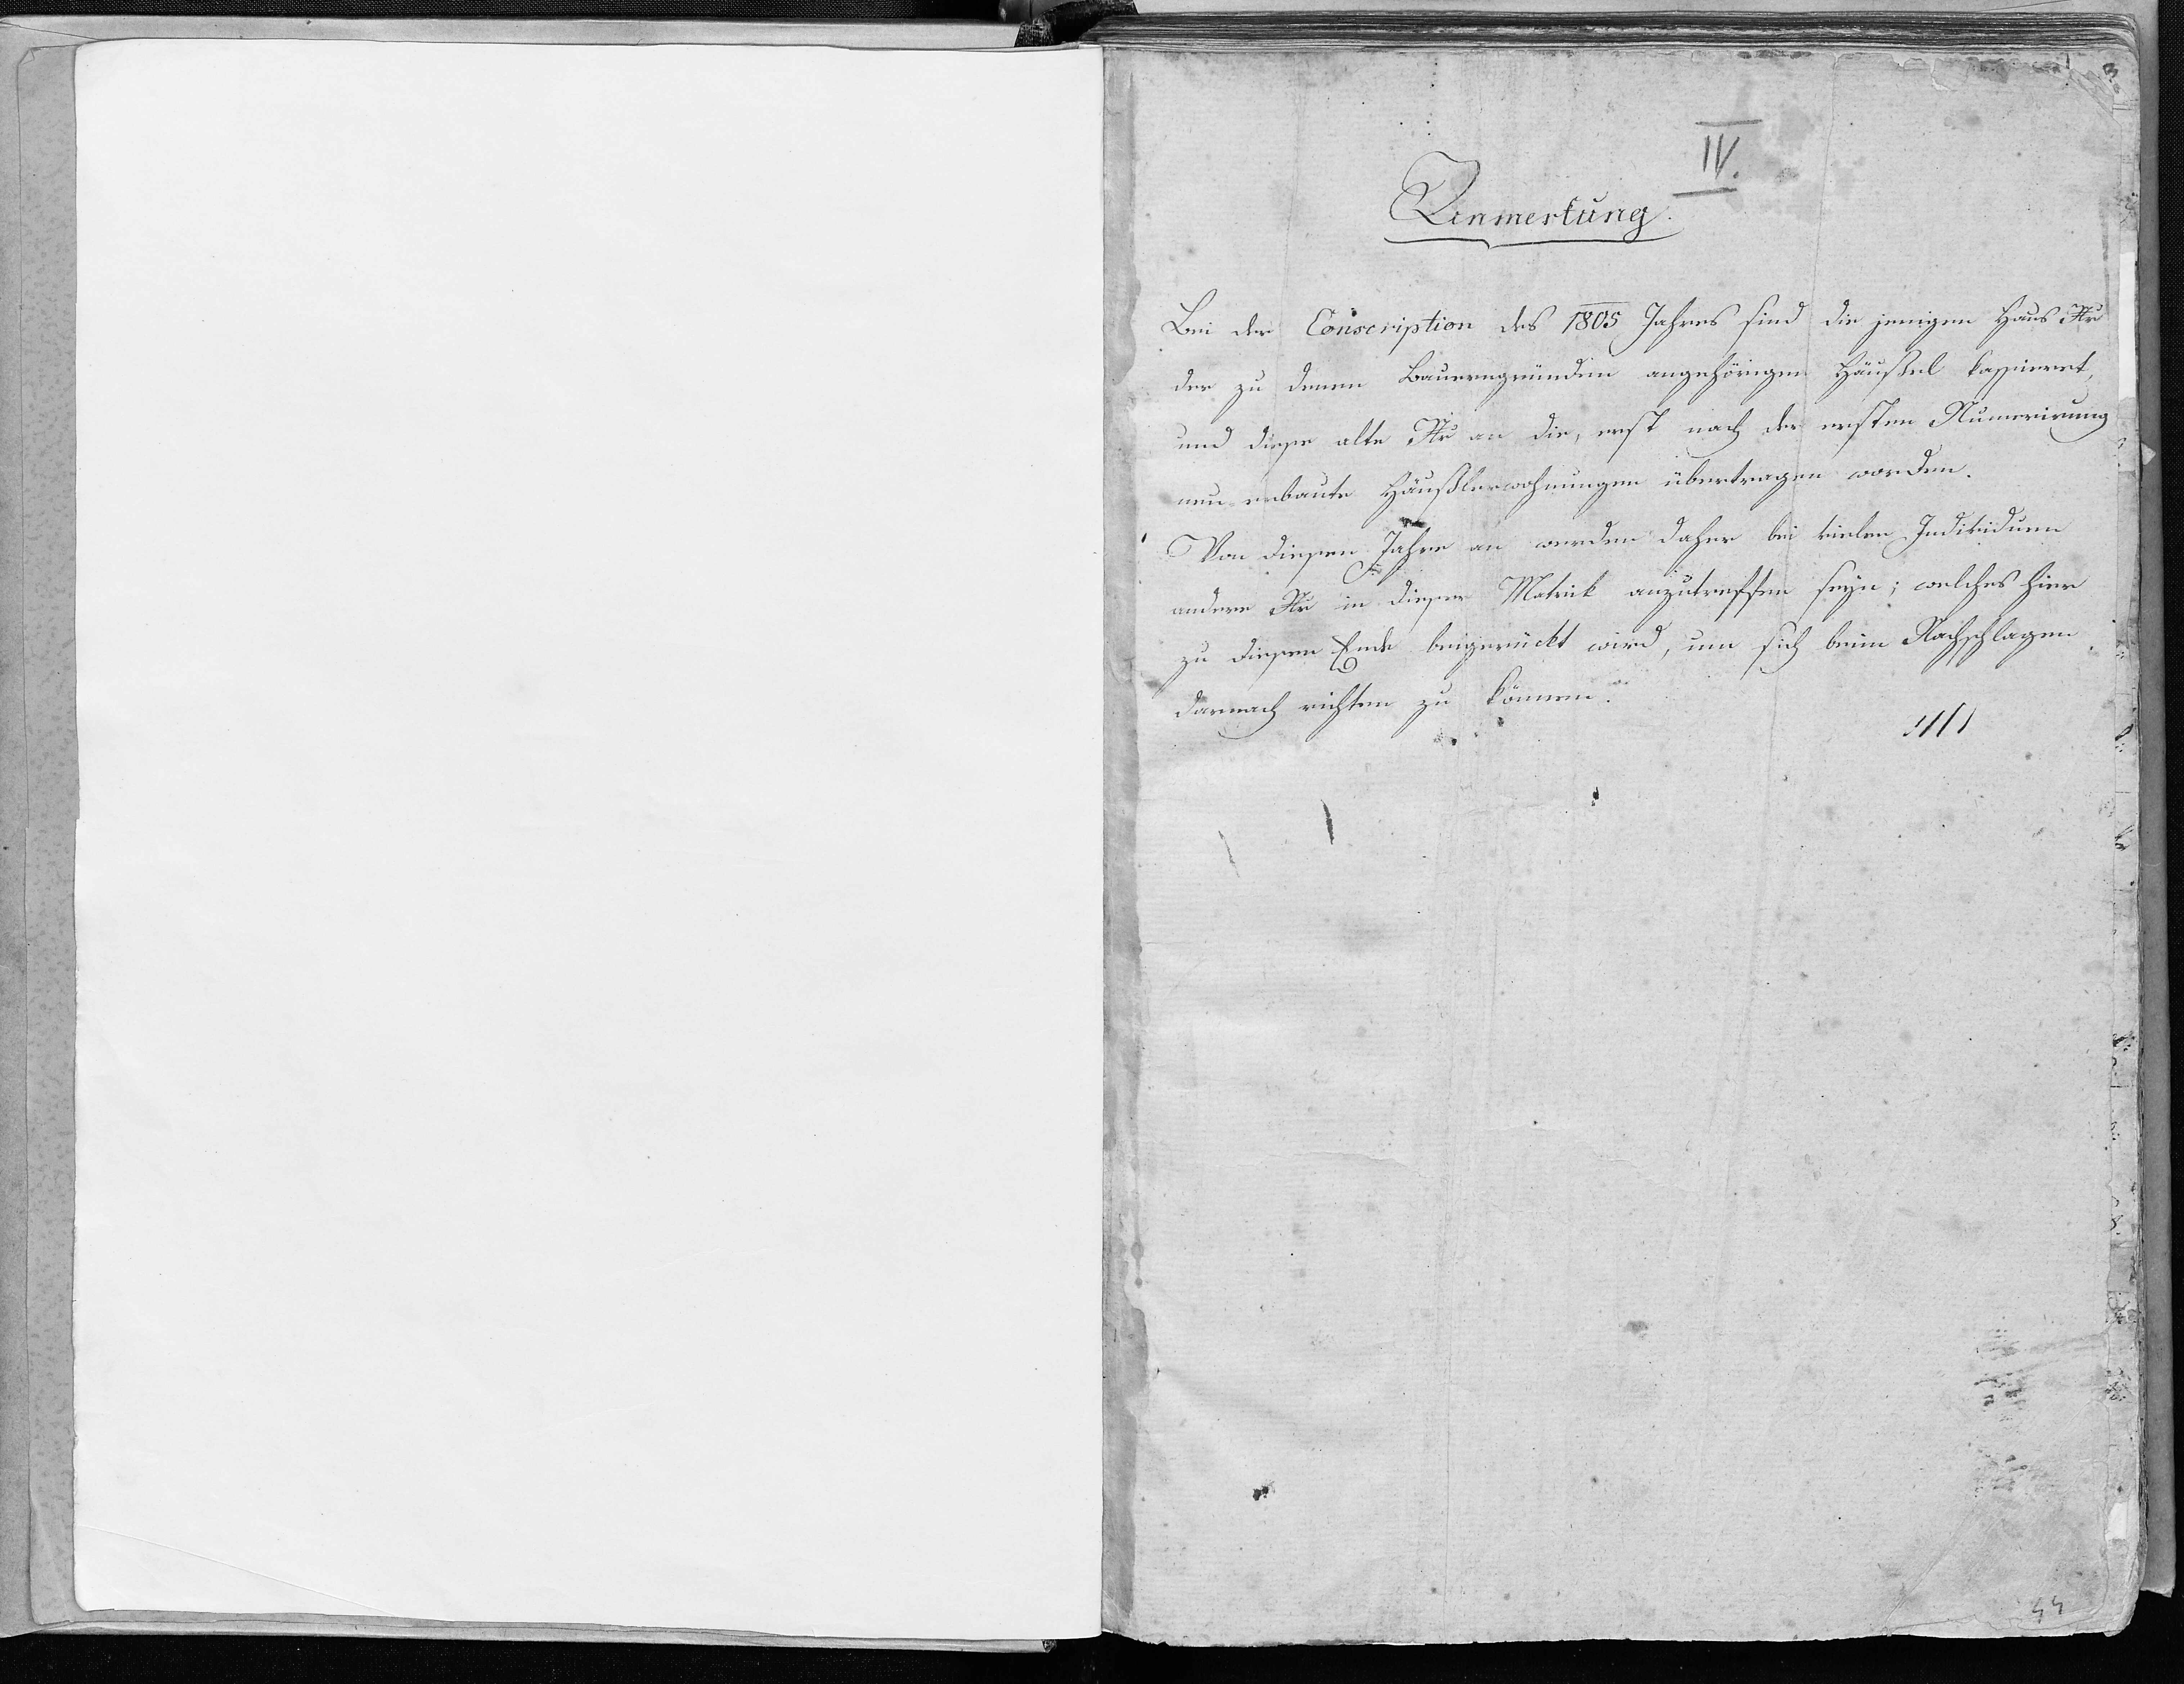 3
IV.
Anmerkung.
Bei der Conscription des 1805 Jahres sind die jenigen Haus Nr̅
der zu denen Bauerngründen angehörigen Häußel kassieret,
und diese alte Nr̅ an die, erst nach der ersten Numerirung
neu erbaute Häußlerwohnungen übertragen worden.
Von diesem Jahre an werden daher bei vielen Individuen
andere Nr̅ in dieser Matrik anzutreffen seyn; welches hier
zu diesem Ende beigerückt wird, um sich beim Nachschlagen
darnach richten zu können.
44